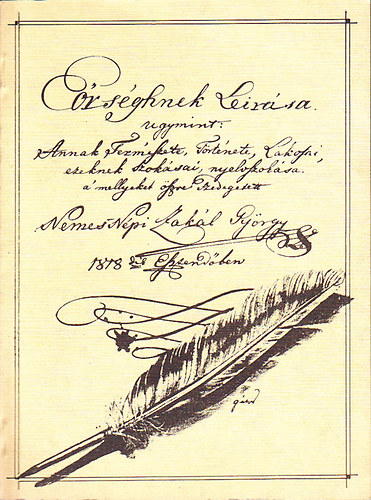 Eörséghnek Leirása.
ugymint:
Annak Fezmészete, Története, Lakossi,
ezeknek szokásai, nyelvszokása.
a' mellyeket öszve szedegetett
Nemes Népi Zakál György
1818dik Esztendőben